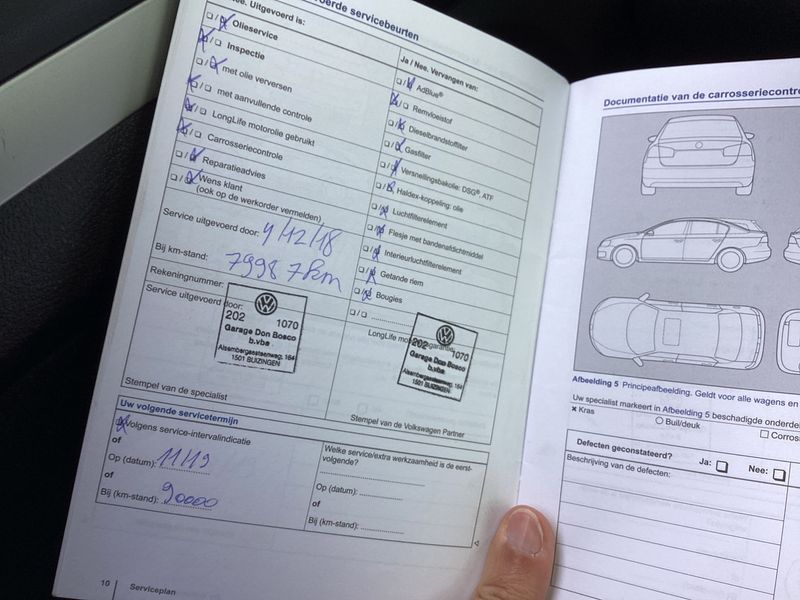 oerde servicebeurten
ee. Uitgevoerd is:
Olieservice
Inspectie
met olie verversen
met aanvullende controle
LongLife motorolie gebruikt
Carrosseriecontrole
Reparatieadvies
Wens klant
(ook op de werkorder vermelden)
Service uitgevoerd door: 4/12/18
Bij km-stand: 79987km
Rekeningnummer:
Service uitgevoerd door:
202 1070
Garage Don Bosco
b.vba.
Alsembergsesteenweg, 164
1501 BUIZINGEN
Stempel van de specialist
Ja / Nee. Vervangen van:
AdBlue®
Remvloeistof
Dieselbrandstoffilter
Gasfilter
Versnellingsbakolie: DSG®, ATF
Haldex-koppeling: olie
Luchtfilterelement
Flesje met bandenafdichtmiddel
Interieurluchtfilterelement
Getande riem
Bougies
LongLife
202 1070
Garage Don Bosco
b.vba.
Alsembergsesteenweg, 164
1501 BUIZINGEN
Stempel van de Volkswagen Partner
Uw volgende servicetermijn
Volgens service-intervalindicatie
of
Op (datum): 11/19
of
Bij (km-stand): 90000
Welke service/extra werkzaamheid is de eerst-
volgende?
Op (datum):
of
Bij (km-stand):
10 Serviceplan
Documentatie van de carrosseriecontro
Afbeelding 5 Principeafbeelding. Geldt voor alle wagens en
Uw specialist markeert in Afbeelding 5 beschadigde onderde
× Kras
Buil/deuk
Corros
Defecten geconstateerd? Ja: Nee:
Beschrijving van de defecten: